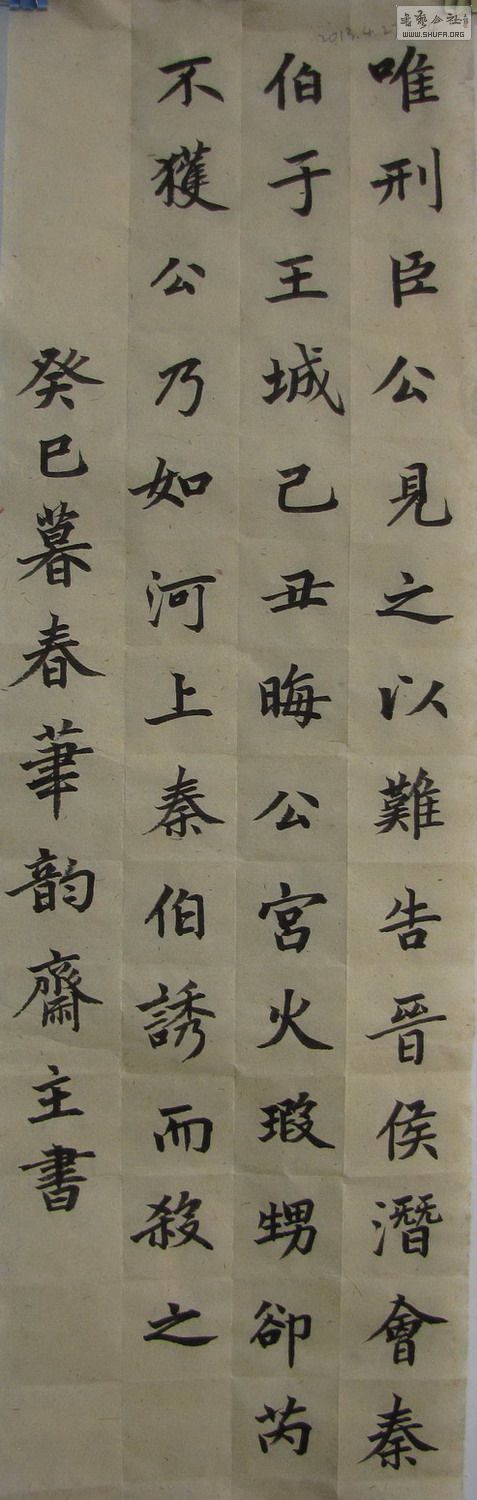 書藝公社
WWW.SHUFA.ORG
2013.4.2
唯刑臣公見之以難告晉侯潛會秦
伯于王城己丑晦公宮火瑕甥卻芮
不獲公乃如河上秦伯誘而殺之
癸巳暮春茟韵齋主書